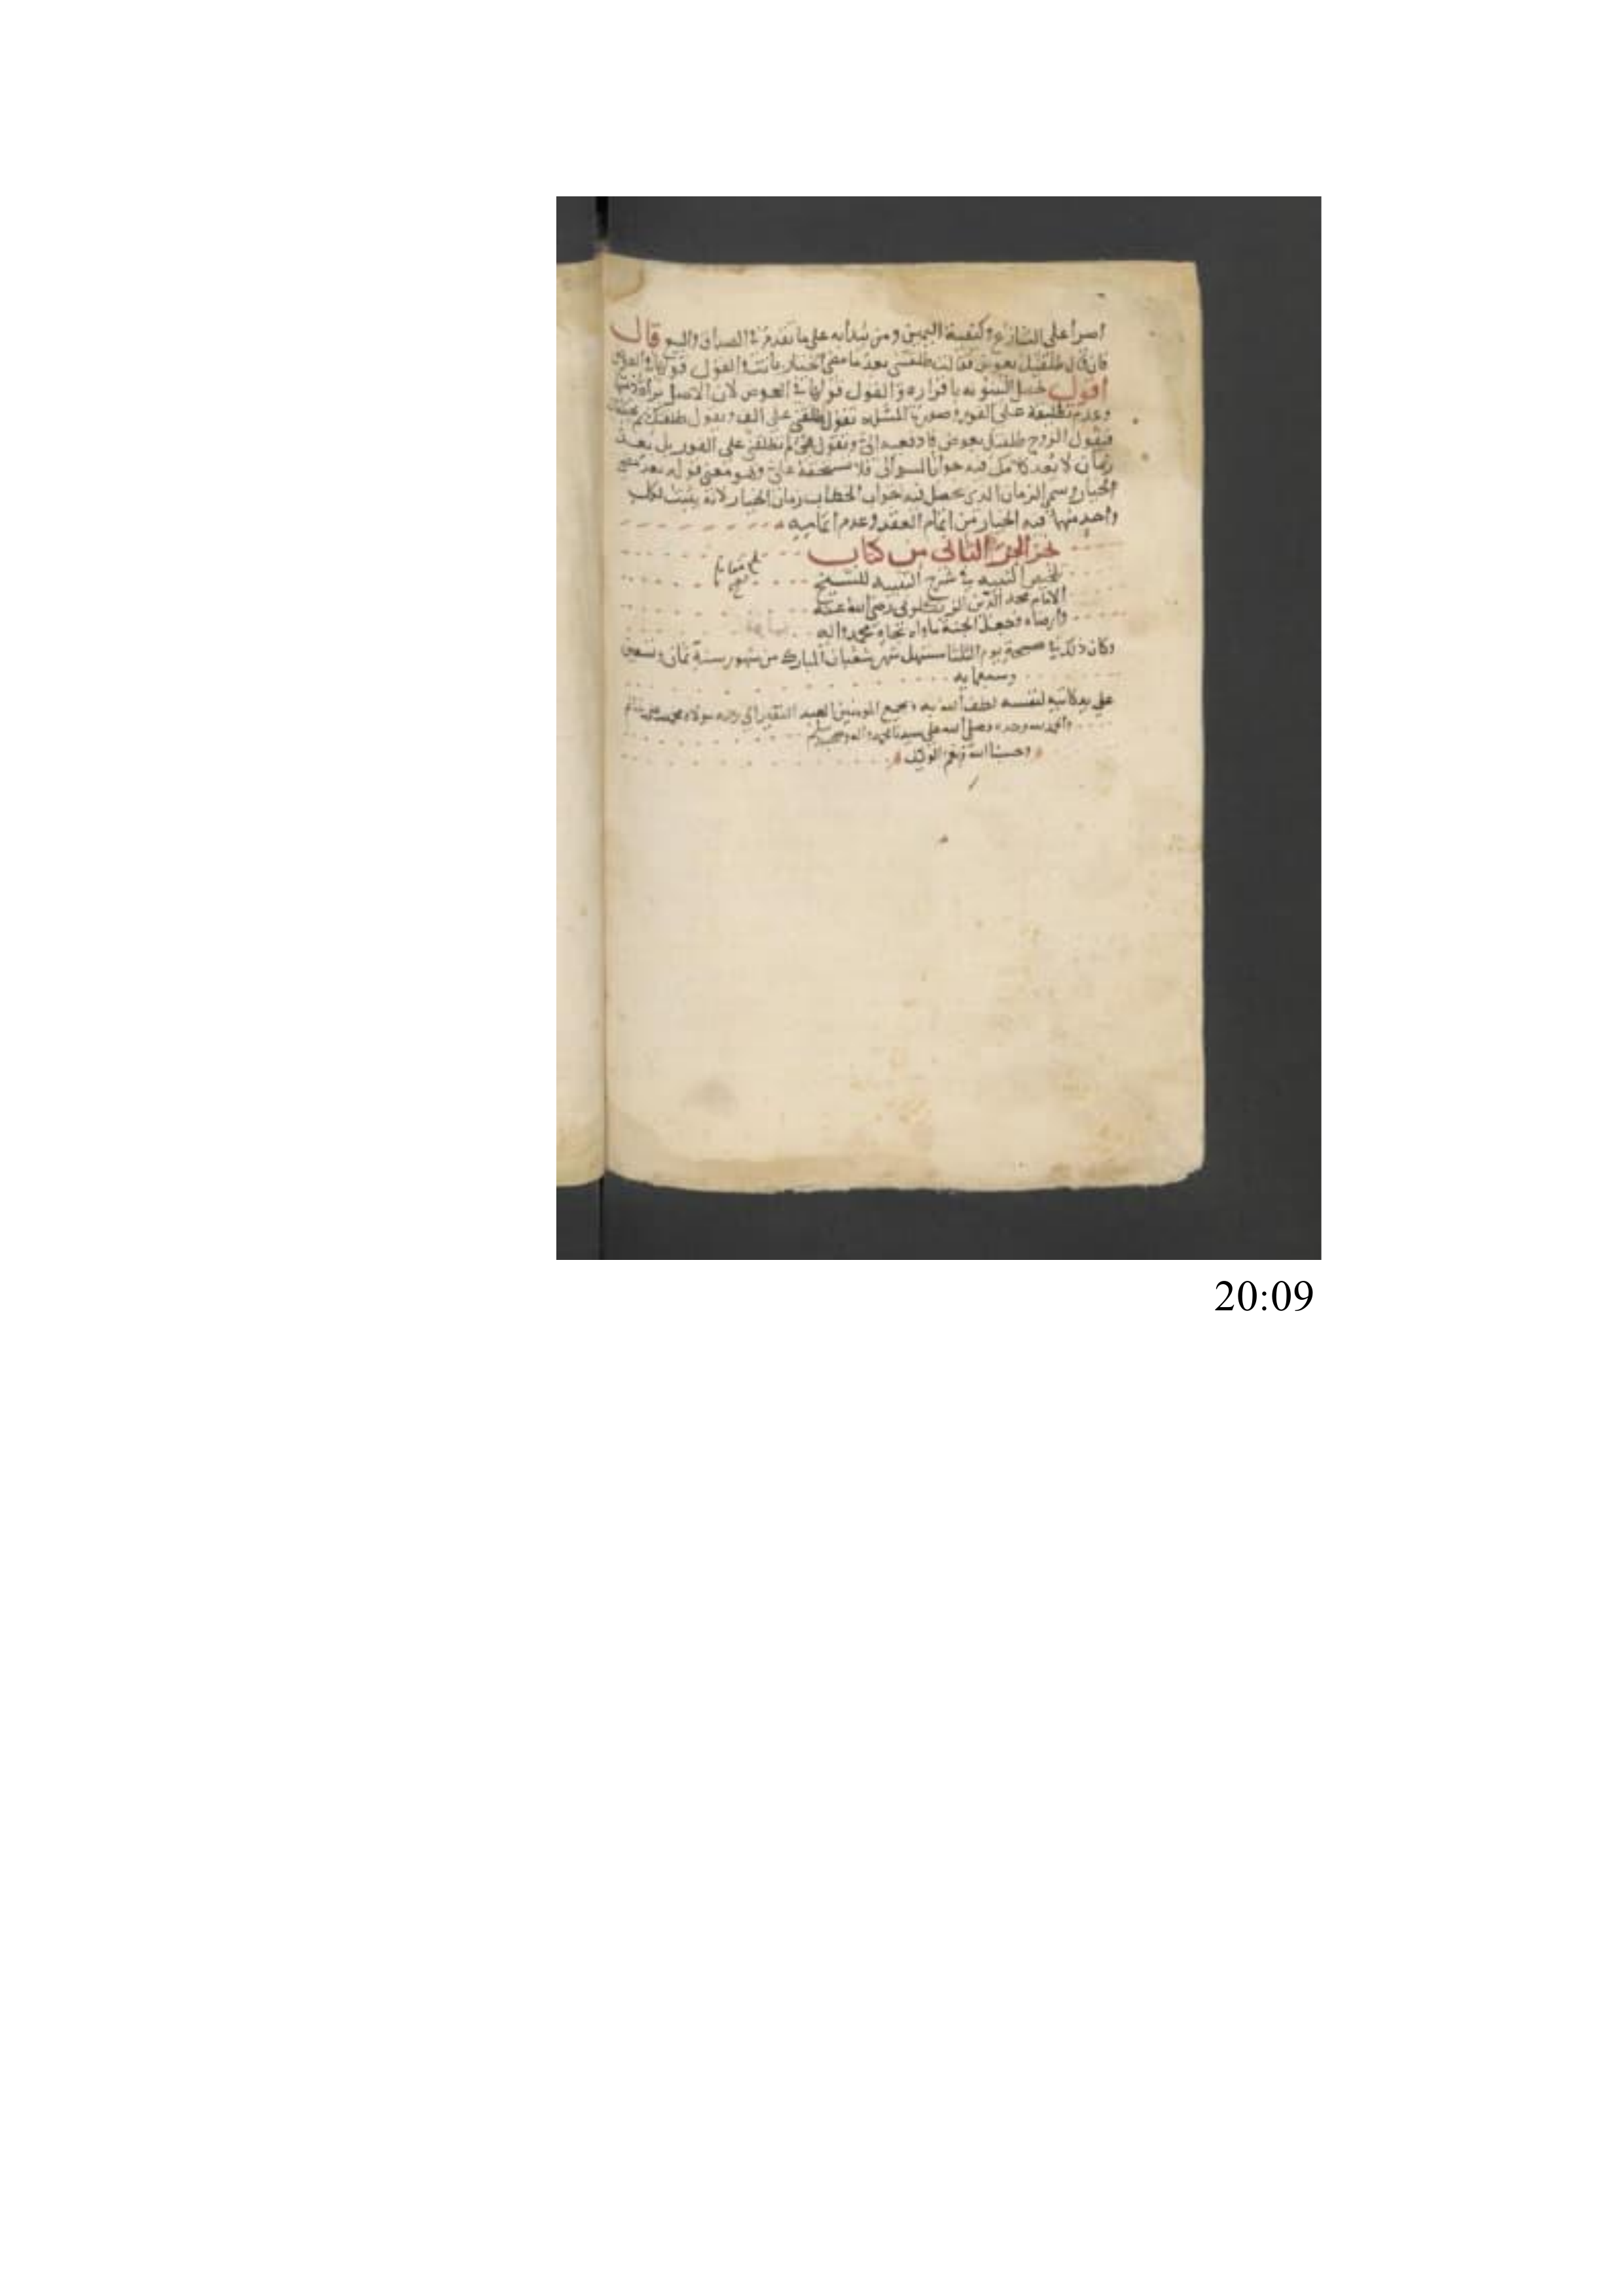 اصرا على التنازع وكيفية اليمين ومن يبدأ به على ما تقدم في الصداق والبيع قال
فان قال طلقتك بعوض فقالت طلقتني بعد ما مضى الخيار بانت والقول قولها في العوض
اقول تحصل البينونة باقراره والقول قولها في العوض لان الاصل براة ذمتها
وعدم تطليقه على الفور وصورة المسئلة تقول طلقني على الف ويقول طلقتك ثم
فيقول الزوج طلقتك بعوض فادفعيه الي وتقول هي لم تطلقني على الفور بل بعد
زمان لا يعد كلامك فيه جوابا لسوالي فلا تستحقه علي وهو معنى قوله بعد مضي
الخيار وسمي الزمان الذي يحصل فيه جواب الخطاب زمان الخيار لانه يثبت لكل
واحد منهما فيه الخيار من اتمام العقد وعدم اتمامه
نجز الجزء الثاني من كتاب
التنبيه في شرح التنبيه للشيخ
الامام مجد الدين الزنكلوني رضي الله عنه
وارضاه وجعل الجنة ماواه بجاه محمد واله
وكان ذلك في صبيحة يوم الثلثا مستهل شهر شعبان المبارك من شهور سنة ثمان وتسعين
وسبعمايه
على يد كاتبه لنفسه لطف الله به وبجميع المومنين العبد الفقير الى مولاه محمد
والحمد لله وحده وصلى الله على سيدنا محمد واله وصحبه وسلم
وحسبنا الله ونعم الوكيل
20:09